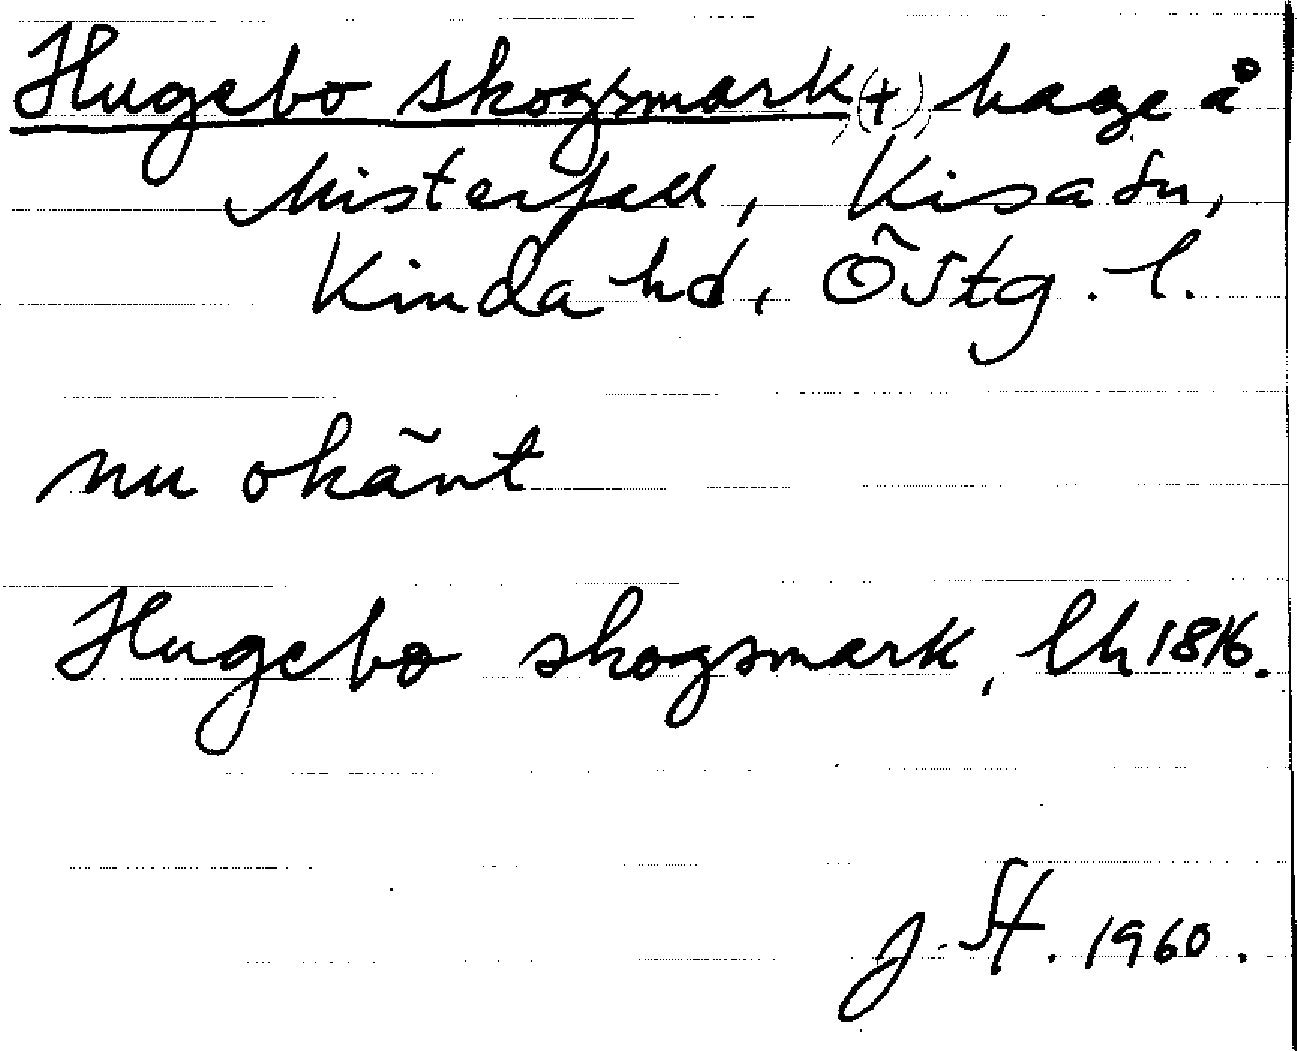 Hugebo skogsmark (+), hage å
Misterfall, Kisa sn,
Kinda hd, Östg. l.
nu okänt
Hugebo skogsmark, lh 1816.
J. St. 1960.